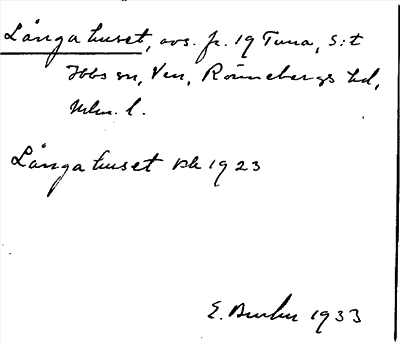 Långa huset, avs. fr. 19 Tuna, S:t
Ibbs sn, Ven, Rönnebergs hd,
Mlm. l.
Långa huset Bk 1923
E. 1933